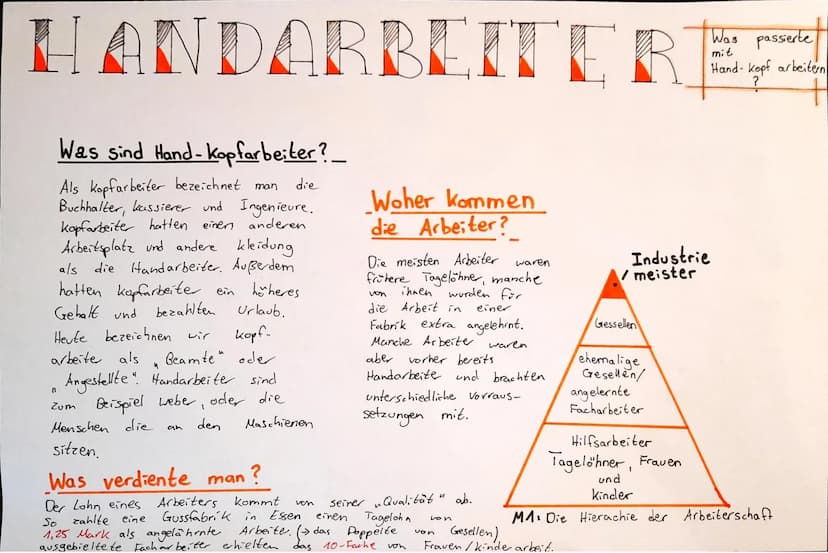 HANDARBEITER
Was passierte
mit
Hand-kopf arbeitern
?
Was sind Hand-kopfarbeiter?
Als kopfarbeiter bezeichnet man die
Buchhalter, kassierer und Ingenieure.
kopfarbeiter hatten einen anderen
Arbeitsplatz und andere kleidung
als die Handarbeiter. Außerdem
hatten kopfarbeiter ein höheres
Gehalt und bezahlten Urlaub.
Heute bezeichnen wir kopf-
arbeite als „Beamte“ oder
„Angestellte“. Handarbeiter sind
zum Beispiel Weber, oder die
Menschen die an den Maschienen
sitzen.
Woher kommen
die Arbeiter?
Die meisten Arbeiter waren
frühere Tagelöhner, manche
von ihnen wurden für
die Arbeit in einer
Fabrik extra angelehrnt.
Manche Arbeiter waren
aber vorher bereits
Handarbeite und brachten
unterschiedliche Vorraus-
setzungen mit.
Industrie
meister
Gessellen
ehemalige
Gesellen/
angelernte
Facharbeiter
Hilfsarbeiter
Tagelöhner, Frauen
und
kinder
M1: Die Hierachie der Arbeiterschaft
Was verdiente man?
Der Lohn eines Arbeiters kommt von seiner „Qualität“ ab.
So zahlte eine Gussfabrik in Essen einen Tagelohn von
1,25 Mark als angelührnte Arbeiter. (→ das Doppelte von Gesellen)
ausgebieltete Facharbeiter erhielten das 10-Fache von Frauen/kinderarbeit.